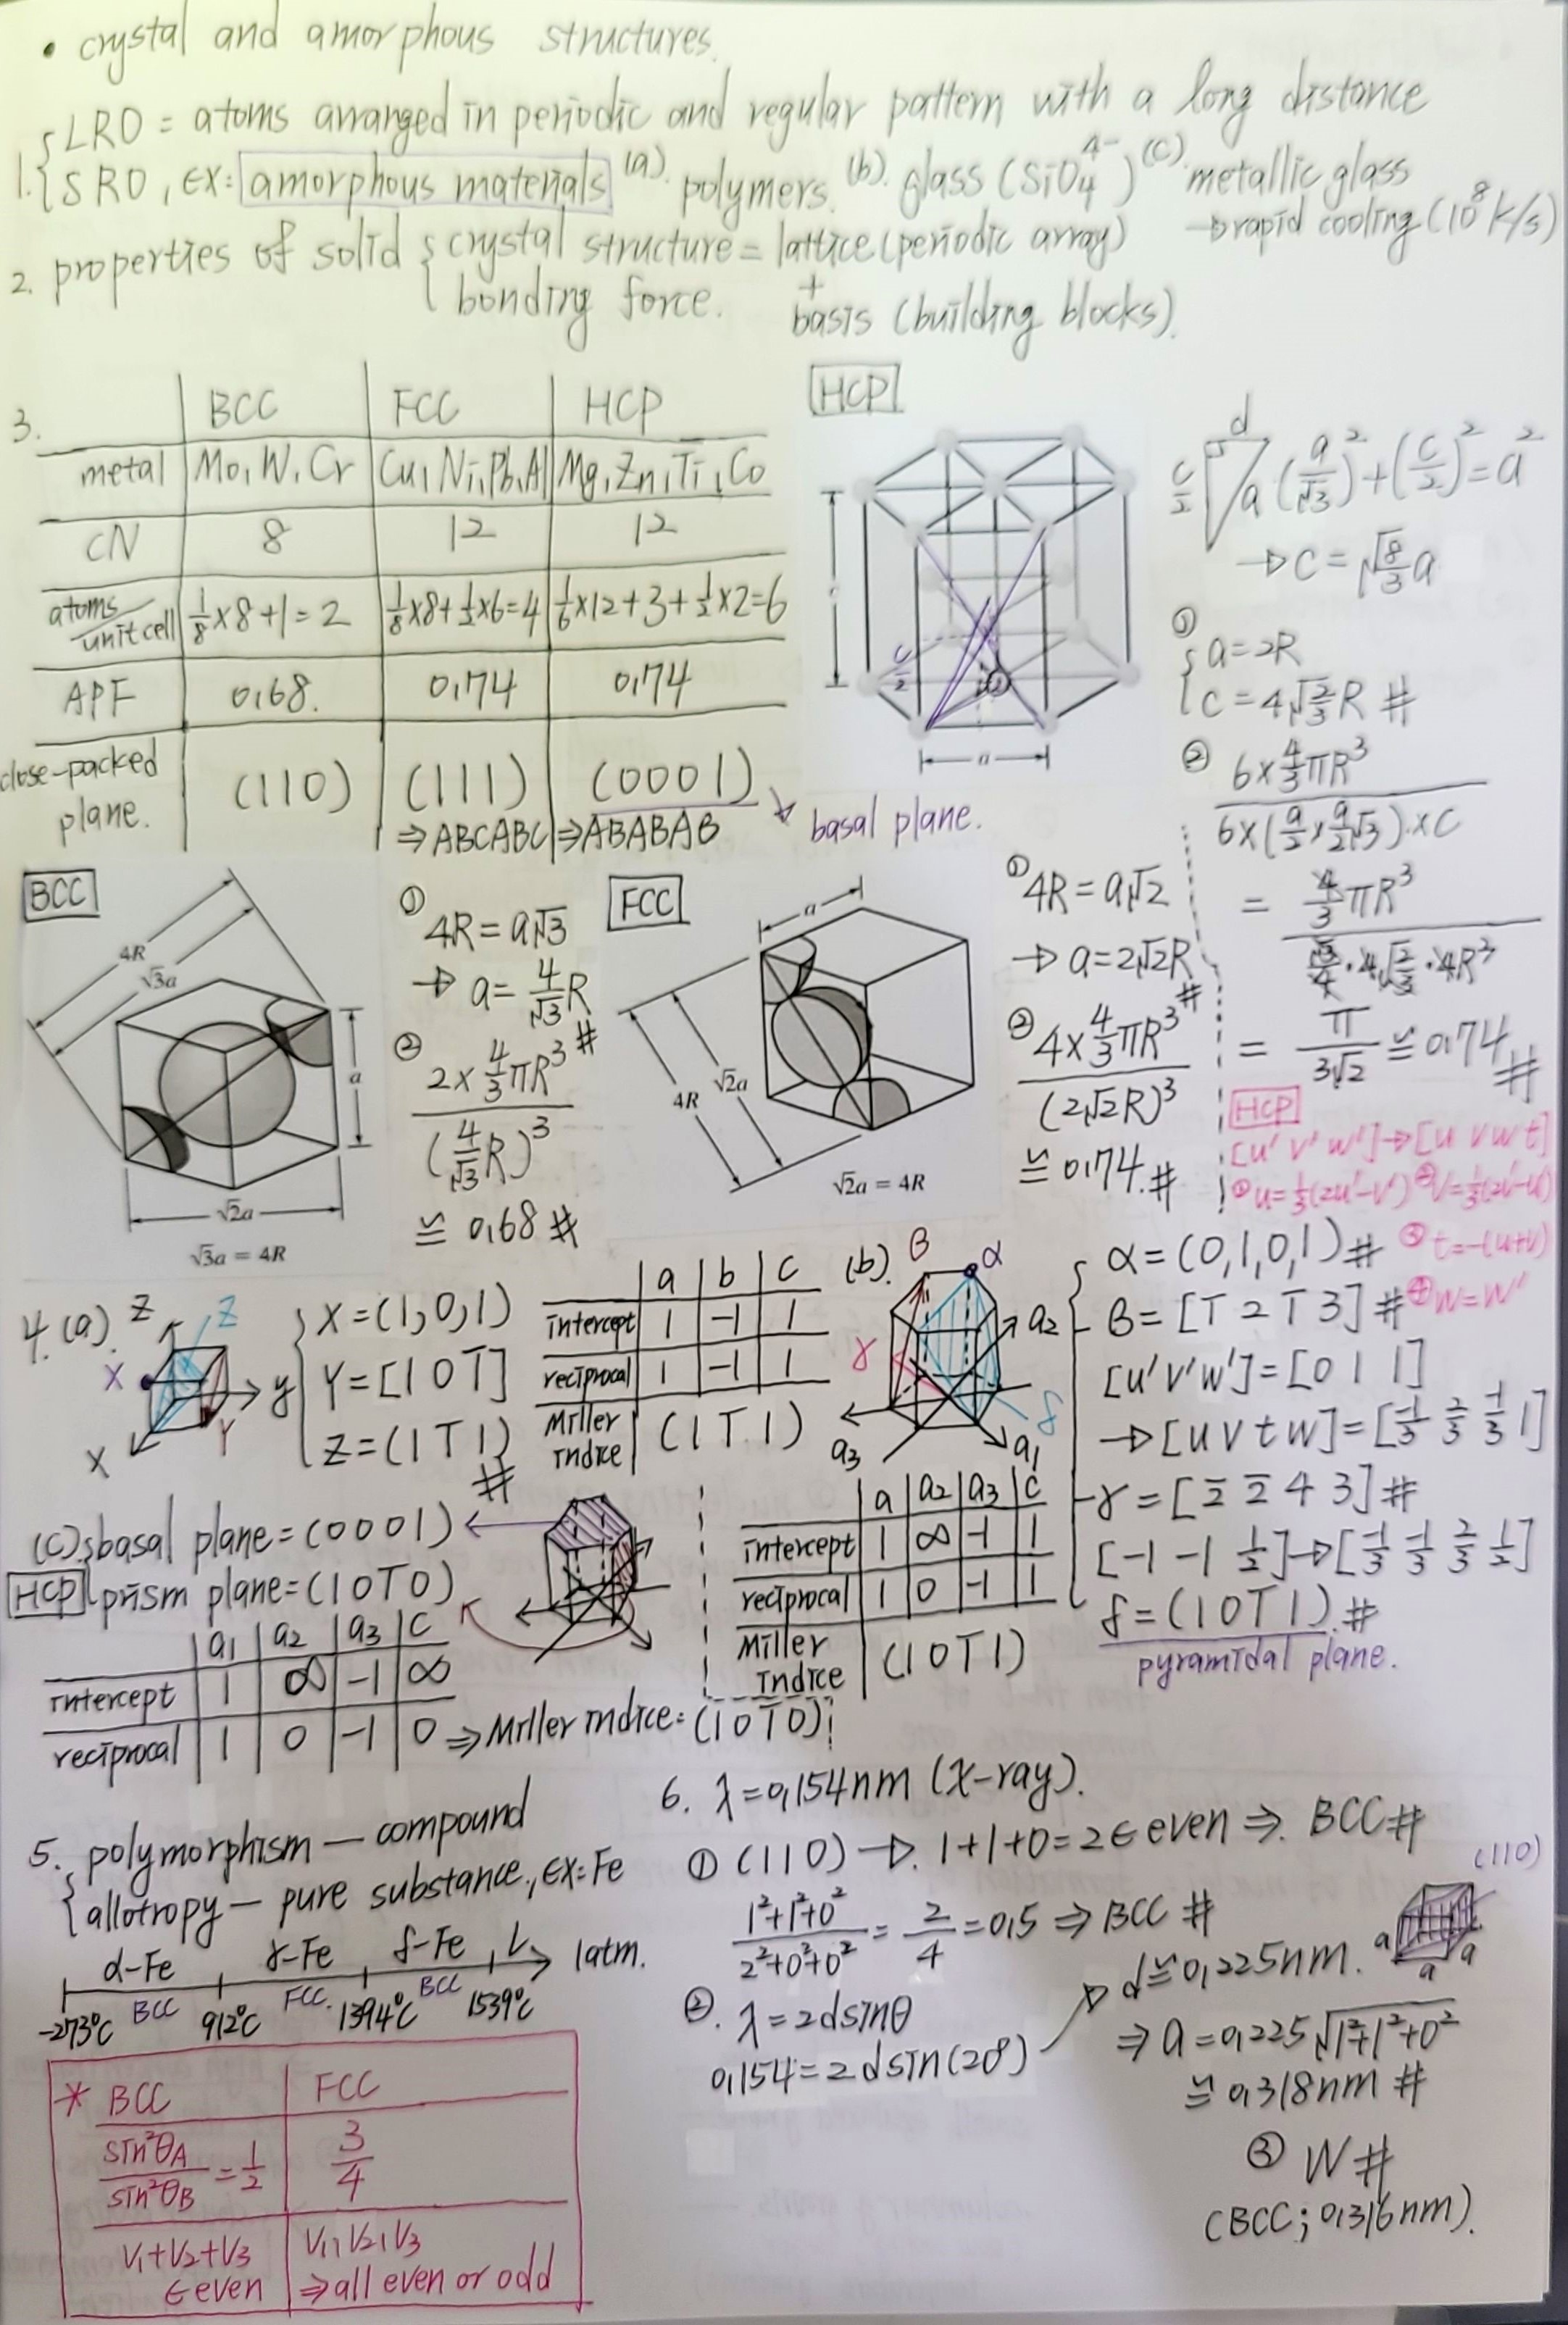 • crystal and amorphous structures.
1. { LRO = atoms arranged in periodic and regular pattern with a long distance
SRO, EX: amorphous materials (a). polymers. (b). glass (SiO₄⁴⁻) (c). metallic glass
→ rapid cooling (10⁸ K/s)
2. properties of solid { crystal structure = lattice (periodic array)
+ basis (building blocks).
bonding force.
3.
BCC | FCC | HCP
metal | Mo, W, Cr | Cu, Ni, Pb, Al | Mg, Zn, Ti, Co
CN | 8 | 12 | 12
atoms/unit cell | 1/8×8+1=2 | 1/8×8+1/2×6=4 | 1/6×12+3+1/2×2=6
APF | 0,68. | 0,74 | 0,74
close-packed plane. | (110) | (111) ⇒ ABCABC | (0001) ⇒ ABABAB
basal plane.
HCP
c
c/2
a
c/2 d a (a/√3)² + (c/2)² = a²
→ c = √(8/3) a
① { a = 2R
c = 4√(2/3) R #
② 6×4/3πR³ / 6×(a/2×a/2√3)·×c
= 4/3 πR³ / √3/4·4√(2/3)·4R³
= π/3√2 ≅ 0,74 #
BCC
4R
√3a
a
√2a
√3a = 4R
① 4R = a√3
→ a = 4/√3 R #
② 2×4/3πR³ / (4/√3 R)³
≅ 0,68 #
FCC
a
√2a
4R
√2a = 4R
① 4R = a√2
→ a = 2√2R #
② 4×4/3πR³ / (2√2R)³
≅ 0,74. #
HCP
[u' v' w'] → [u v w t]
① u = 1/3(2u'-v') ② v = 1/3(2v'-u')
③ t = -(u+v)
④ w = w'
4. (a). z Z X y Y x
{ X = (1, 0, 1)
Y = [1 0 1̄]
Z = (1 1̄ 1) #
a | b | c
intercept | 1 | -1 | 1
reciprocal | 1 | -1 | 1
Miller indice | (1 1̄ 1)
(b). β α a₂ γ δ a₃ a₁
{ α = (0, 1, 0, 1) #
β = [1̄ 2 1̄ 3] #
[u'v'w'] = [0 1 1]
→ [u v t w] = [-1/3 2/3 -1/3 1]
γ = [2̄ 2̄ 4 3] #
[-1 -1 1/2] → [-1/3 -1/3 2/3 1/2]
δ = (1 0 1̄ 1). #
pyramidal plane.
a | a₂ | a₃ | c
intercept | 1 | ∞ | -1 | 1
reciprocal | 1 | 0 | -1 | 1
Miller indice | (1 0 1̄ 1)
(c) { basal plane = (0001)
HCP prism plane = (1 0 1̄ 0)
a₁ | a₂ | a₃ | c
intercept | 1 | ∞ | -1 | ∞
reciprocal | 1 | 0 | -1 | 0 ⇒ Miller indice: (1 0 1̄ 0)
5. { polymorphism — compound
allotropy — pure substance, EX: Fe
α-Fe γ-Fe δ-Fe L 1atm.
BCC FCC. BCC
-273°C 912°C 1394°C 1539°C
* BCC | FCC
sin²θA/sin²θB = 1/2 | 3/4
V₁+V₂+V₃ ∈ even | V₁, V₂, V₃ ⇒ all even or odd
6. λ = 0,154nm (X-ray).
① (110) → 1+1+0 = 2 ∈ even ⇒ BCC #
1²+1²+0² / 2²+0²+0² = 2/4 = 0,5 ⇒ BCC #
②. λ = 2dsinθ
0,154 = 2dsin(20°)
→ d ≅ 0,225nm.
(110)
a a a
⇒ a = 0,225√(1²+1²+0²)
≅ 0,318nm #
③ W #
(BCC; 0,316nm).